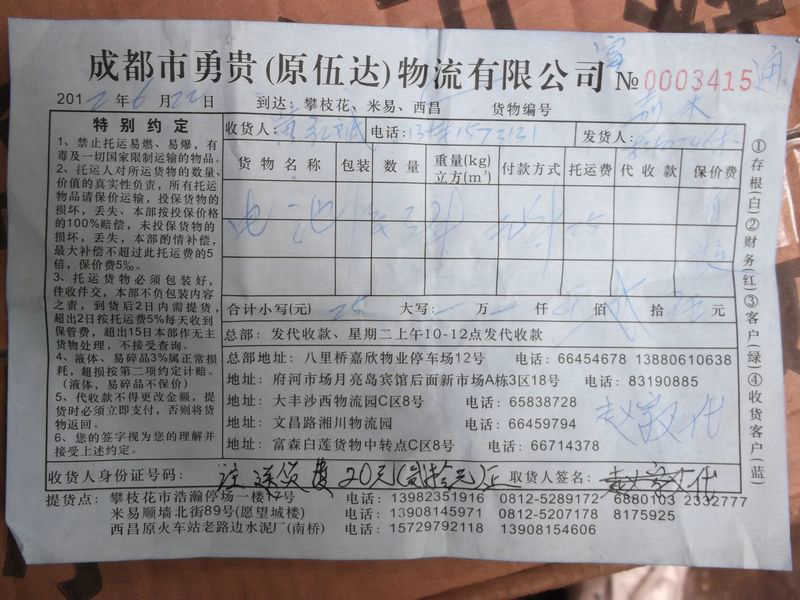 成都市勇贵(原伍达)物流有限公司 № 0003415 通
2012年6月22日 到达：攀枝花、米易、西昌 货物编号
特别约定
1、禁止托运易燃、易爆，有
毒及一切国家限制运输的物品。
2、托运人对所运货物的数量、
价值的真实性负责，所有托运
物品请保价运输，投保货物的
损坏，丢失、本部按投保价格
的100%赔偿，未投保货物的
损坏，丢失，本部酌情补偿，
最大补偿不超过此托运费的5
倍，保价费5‰。
3、托运货物必须包装好，
件收件交，本部不负包装内容
之责，到货后2日内需提货，
超出2日按托运费5%每天收到
保管费，超出15日本部作无主
货物处理，不接受查询。
4、液体、易碎品3%属正常损
耗，超损按第二项约定计赔。
(液体、易碎品不保价)
5、代收款不得更改金额，提
货时必须立即支付，否则将货
物返回。
6、您的签字视为您的理解并
接受上述约定。
收货人： 电话： 发货人：
货物名称 包装 数量 重量(kg) 立方(m³) 付款方式 托运费 代收款 保价费
电池
合计小写(元) 大写： 万 仟 佰 拾 元
总部：发代收款、星期二上午10-12点发代收款
总部地址：八里桥嘉欣物业停车场12号 电话：66454678 13880610638
地址：府河市场月亮岛宾馆后面新市场A栋3区18号 电话：83190885
地址：大丰沙西物流园C区8号 电话：65838728
地址：文昌路湘川物流园 电话：66459794
地址：富森白莲货物中转点C区8号 电话：66714378
①存根(白)②财务(红)③客户(绿)④收货客户(蓝)
收货人身份证号码： 注送货费20元(贰拾元)正 取货人签名：
提货点：攀枝花市浩瀚停场一楼17号 电话：13982351916 0812-5289172 6880103 2332777
米易顺墙北街89号(愿望城楼) 电话：13908145971 0812-5207178 8175925
西昌原火车站老路边水泥厂(南桥) 电话：15729792118 13908154606